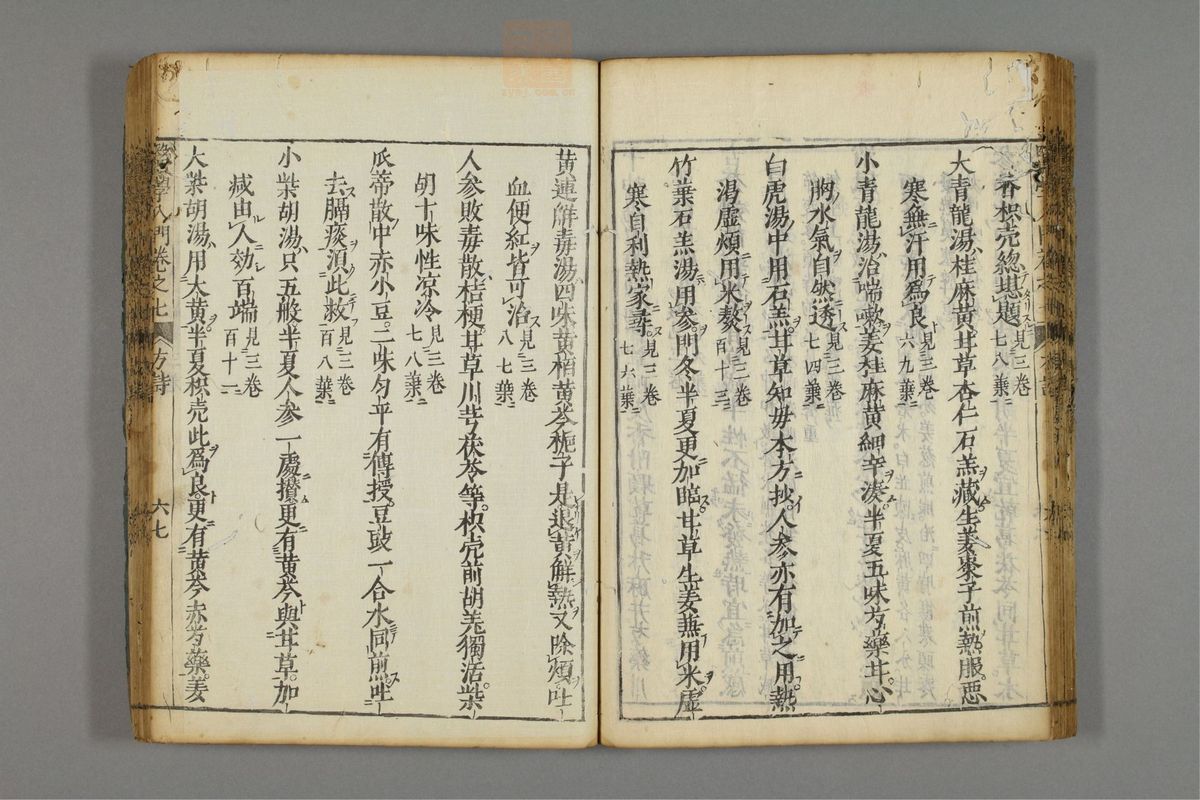 木香枳壳總堪題 見三卷七八葉
大青龍湯桂麻黄甘草杏仁石羔藏生姜枣子煎熱服惡
寒無汗用爲良 見三卷六九葉
小青龍湯治喘嗽姜桂麻黄細辛湊半夏五味芍藥甘心
胸水氣自然透 見三卷七四葉
白虎湯中用石羔甘草知毋本方抄人參亦有加之用熱
渴虚煩用米熬 見三卷百十三
竹葉石羔湯用參門冬半夏更加臨甘草生姜兼用米虚
寒自利熱家尋 見三卷七六葉
黄連解毒湯四味黄栢黄芩梔子是退黄解熱又除煩吐
血便紅皆可治 見三卷八七葉
人參敗毒散桔梗甘草川芎茯苓等枳壳前胡羌獨活柴
胡十味性凉冷 見三卷七八葉
瓜蒂散中赤小豆二味匀平有傳授豆豉一合水同煎吐
去膈痰須此救 見三卷百八葉
小柴胡湯只五般半夏人參一處攢更有黄芩與甘草加
减由人効百端 見三卷百十一
大柴胡湯用大黄半夏枳壳此爲良更有黄芩赤芍藥姜
醫學入門卷之七 方詩 六七